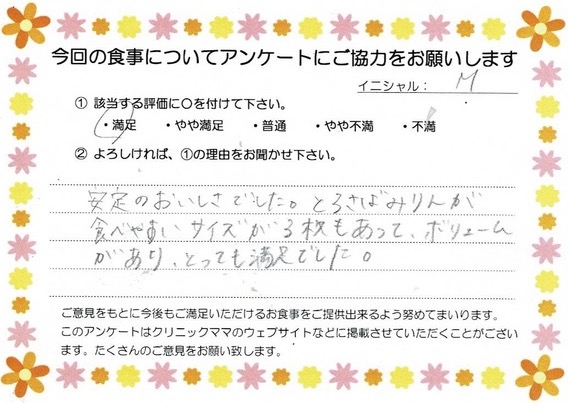 今回の食事についてアンケートにご協力をお願いします
イニシャル： M
① 該当する評価に〇を付けて下さい。
・満足 ・やや満足 ・普通 ・やや不満 ・不満
② よろしければ、①の理由をお聞かせ下さい。
安定のおいしさでした。とろさばみりんが
食べやすいサイズが3枚もあって、ボリューム
があり、とっても満足でした。
ご意見をもとに今後もご満足いただけるお食事をご提供出来るよう努めてまいります。
このアンケートはクリニックママのウェブサイトなどに掲載させていただくことがござい
ます。たくさんのご意見をお願い致します。